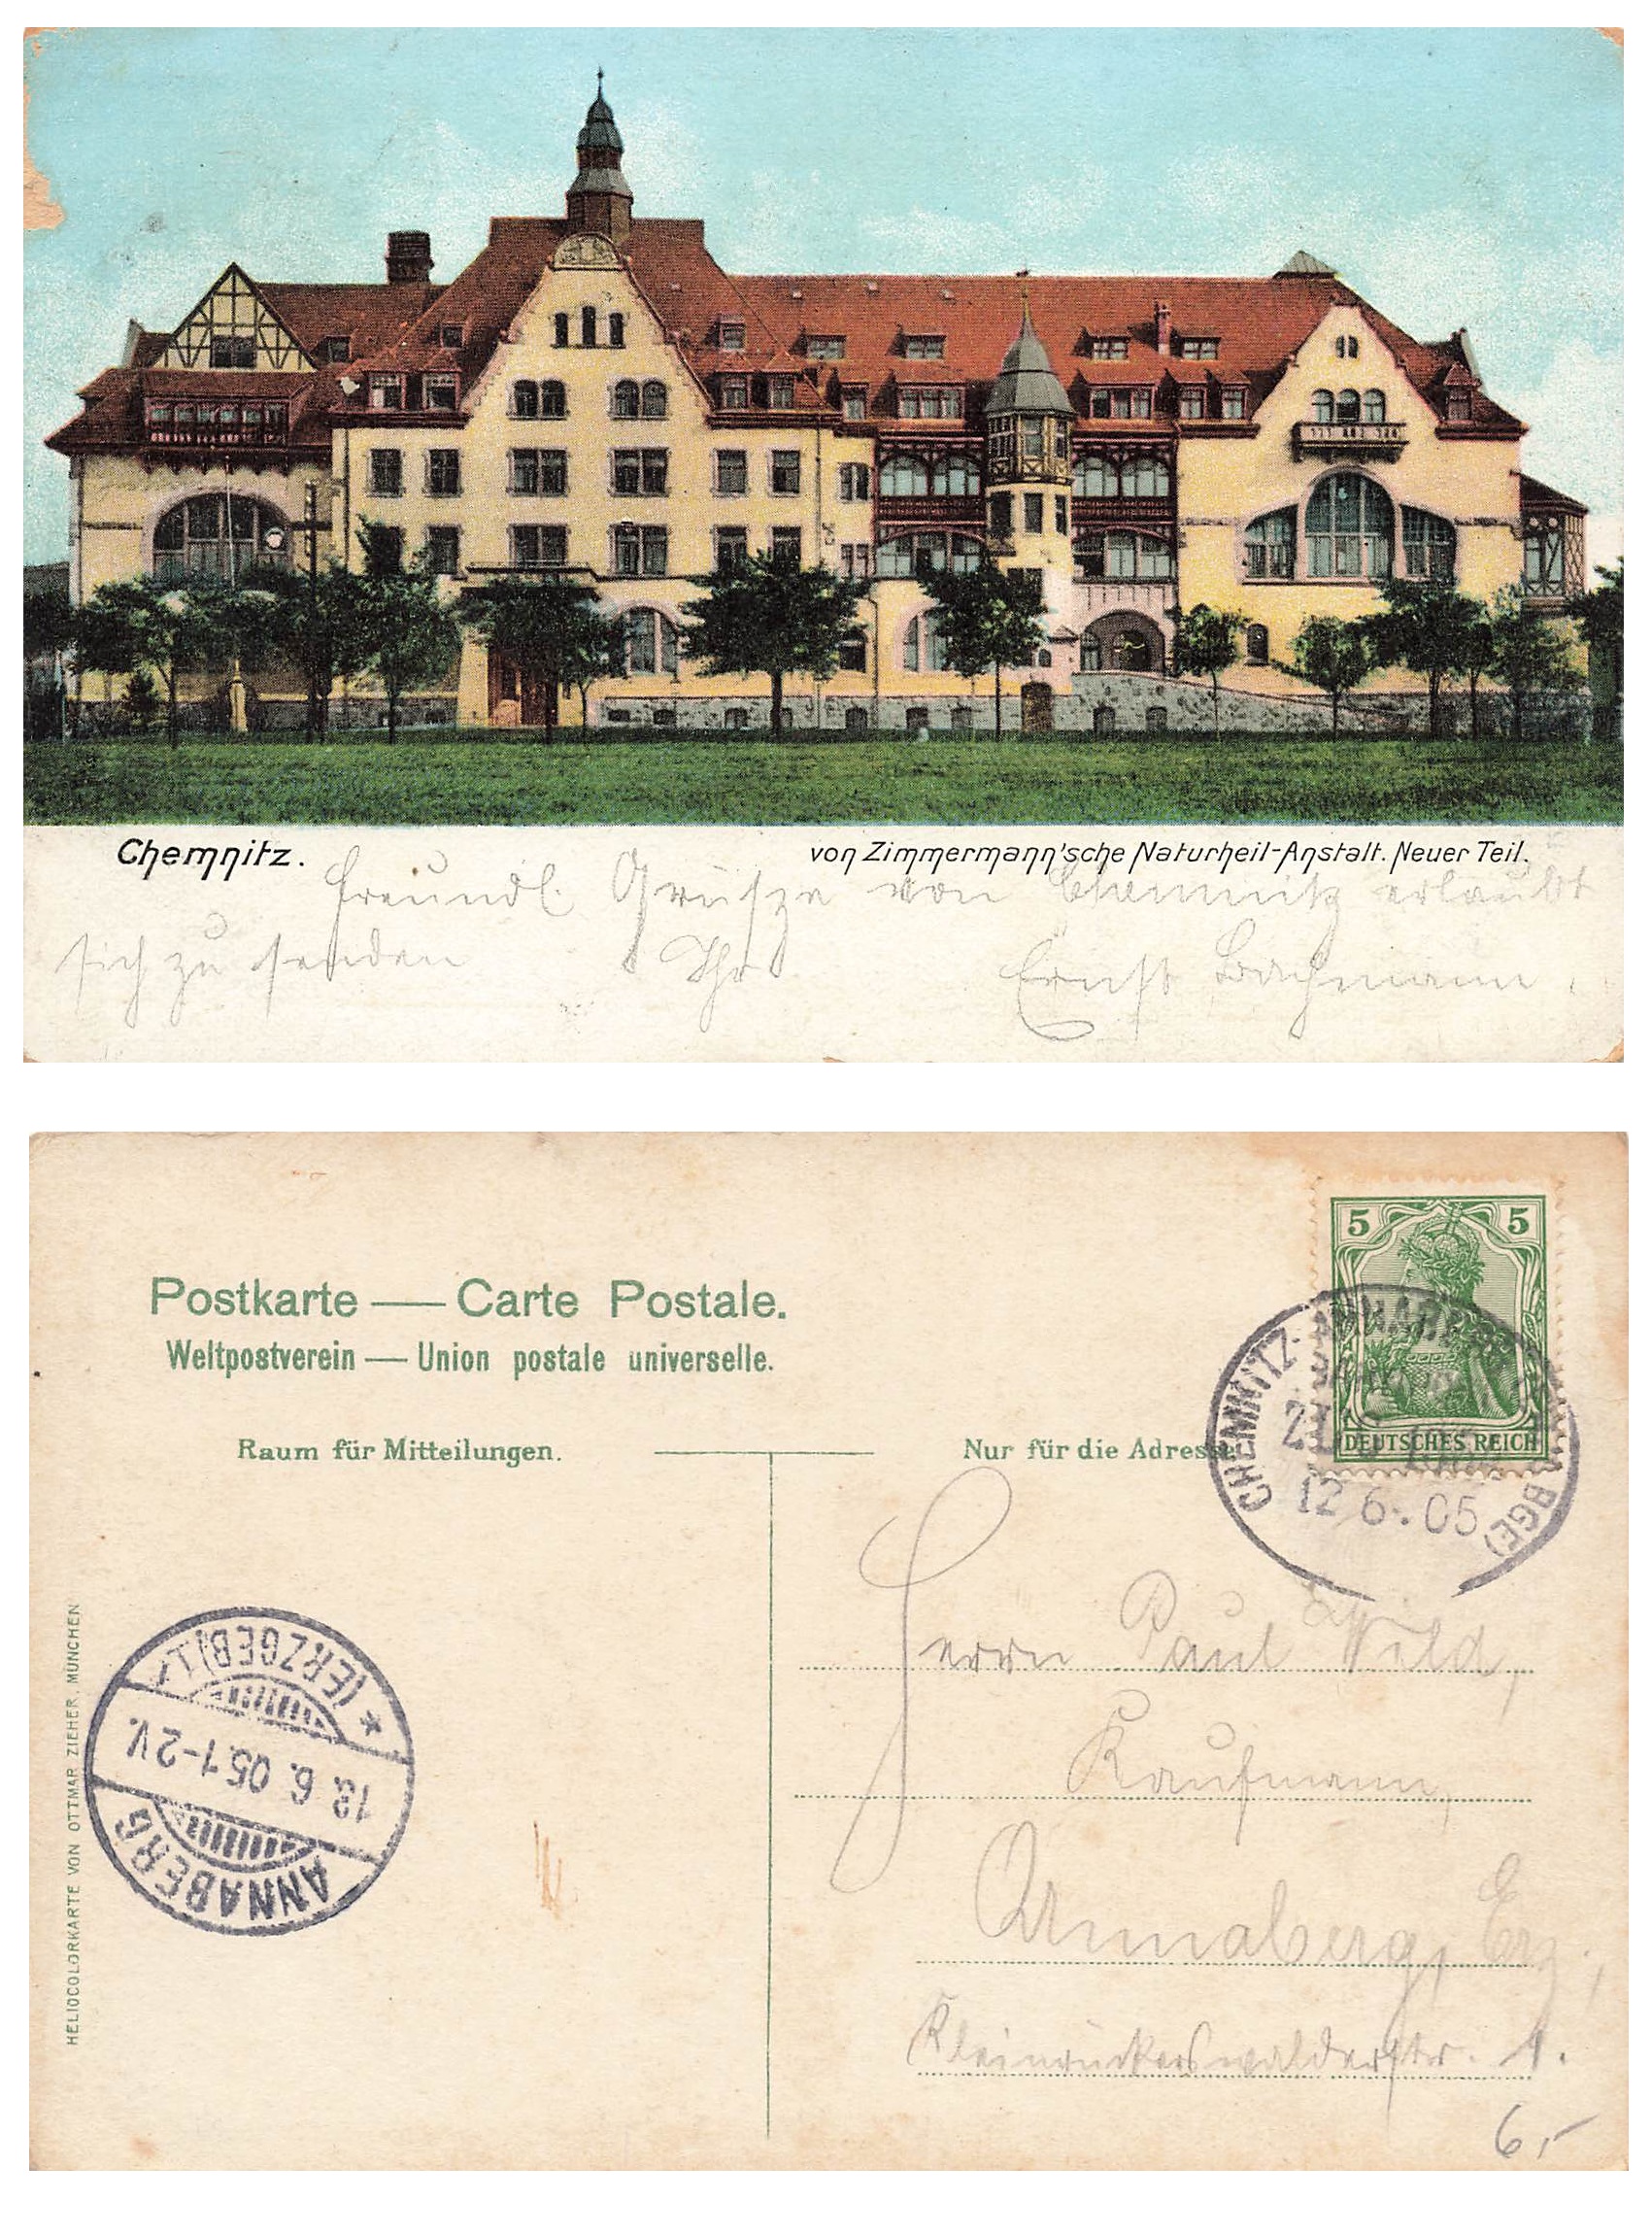 Chemnitz.
von Zimmermann'sche Naturheil-Anstalt. Neuer Teil.
freundl. Grüsze von Chemnitz erlaubt
sich zu senden Ihr Ernst Bachmann.
5 5
DEUTSCHES REICH
Postkarte — Carte Postale.
Weltpostverein — Union postale universelle.
Raum für Mitteilungen.
Nur für die Adresse
CHEMNITZ-ANNABERG BGE)
12 6. 05
Herrn Paul Wild,
Kaufmann,
Annaberg, Erz.,
Kleinrückerswalderstr. 1.
6,-
ANNABERG
* (ERZGEB) 1.
13. 6. 05. 1-2 V.
HELIOCOLORKARTE VON OTTMAR ZIEHER, MÜNCHEN